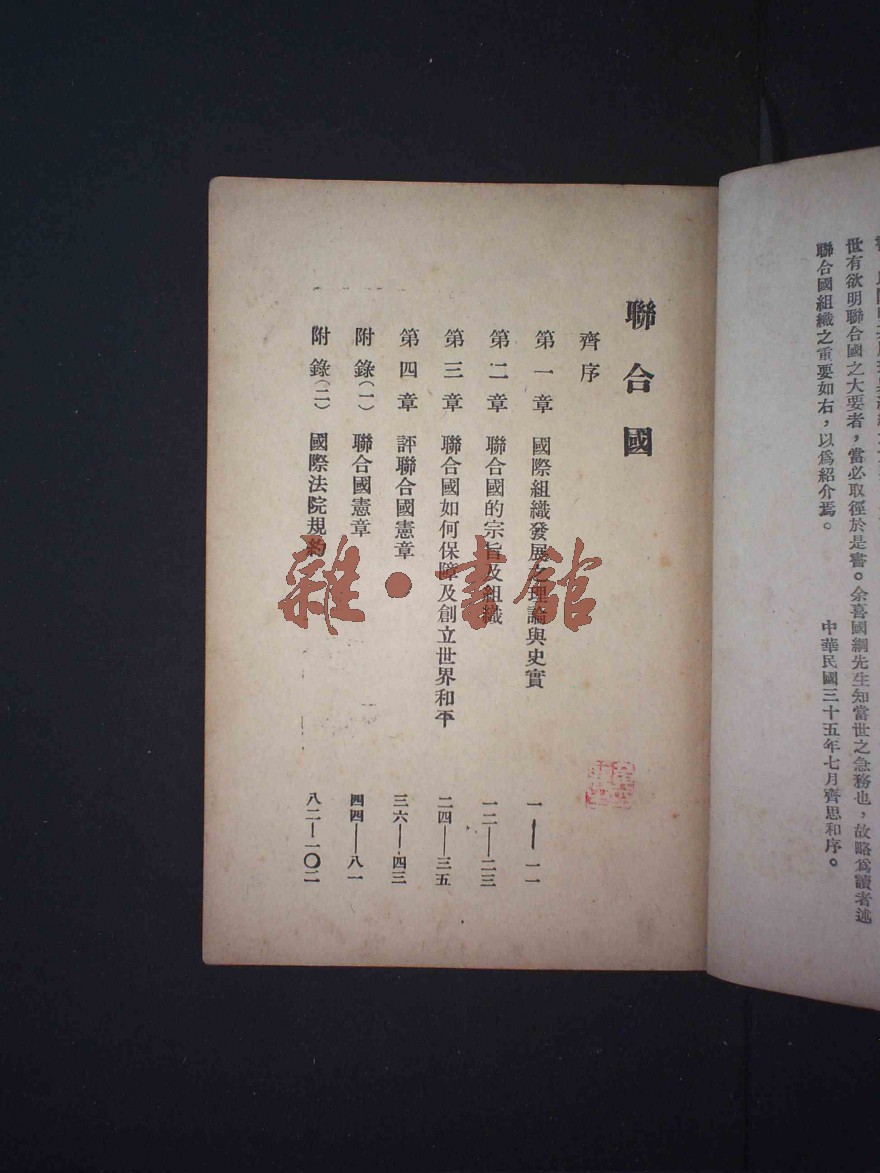 世有欲明聯合國之大要者，當必取徑於是書。余喜國綱先生知當世之急務也，故略爲讀者述
聯合國組織之重要如右，以爲紹介焉。
中華民國三十五年七月齊思和序。
聯合國
齊序
第一章 國際組織發展之理論與史實 一—一一
第二章 聯合國的宗旨及組織 一二—二三
第三章 聯合國如何保障及創立世界和平 二四—三五
第四章 評聯合國憲章 三六—四三
附錄(一) 聯合國憲章 四四—八一
附錄(二) 國際法院規約 八二—一〇二
雜·書館